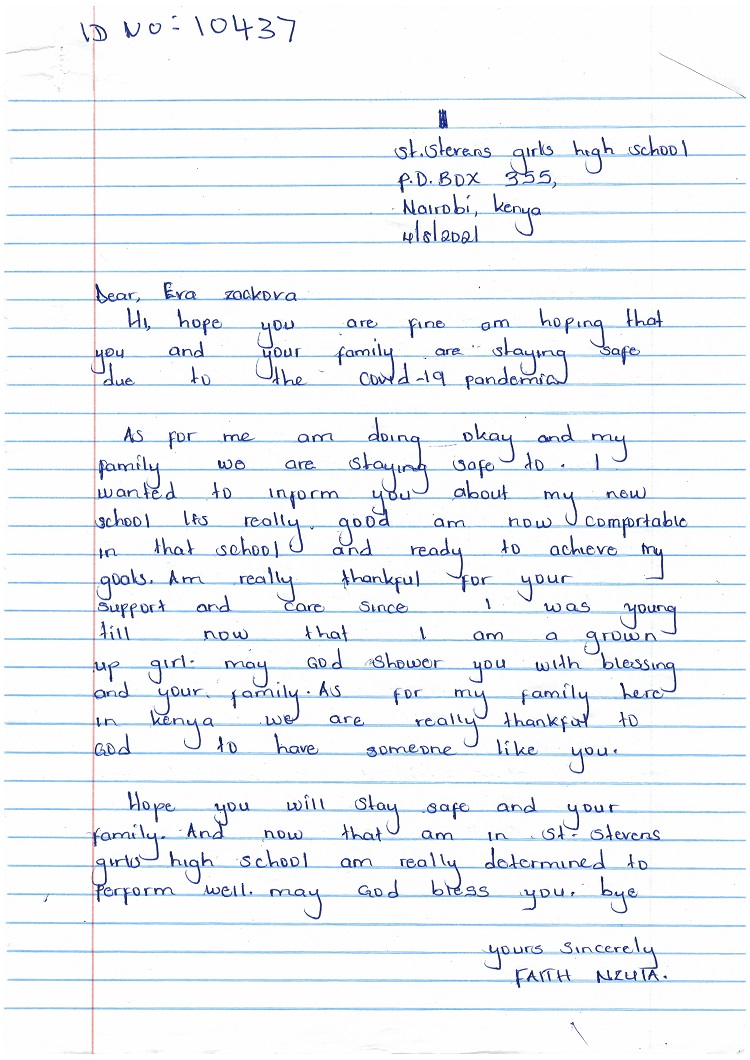 ID NO: 10437
St. Stevens girls high school
P.O. BOX 355,
Nairobi, Kenya
4/8/2021
Dear, Eva Zackova
Hi, hope you are fine am hoping that
you and your family are staying safe
due to the covid-19 pandemic
As for me am doing okay and my
family we are staying safe to. I
wanted to inform you about my new
school Its really good am now comfortable
in that school and ready to achieve my
goals. Am really thankful for your
support and care since I was young
till now that I am a grown
up girl. may God shower you with blessing
and your family. As for my family here
in kenya we are really thankful to
God to have someone like you.
Hope you will stay safe and your
family. And now that am in St. Stevens
girls high school am really determined to
perform well. may God bless you. bye
yours sincerely
FAITH